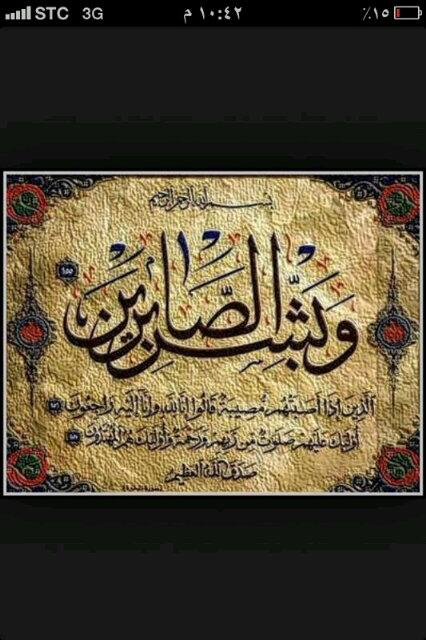 STC 3G ١٠:٤٢ م ٪١٥
بسم الله الرحمن الرحيم
وَبَشِّرِ الصَّابِرِينَ ١٥٥
الَّذِينَ إِذَا أَصَابَتْهُمْ مُصِيبَةٌ قَالُوا إِنَّا لِلَّهِ وَإِنَّا إِلَيْهِ رَاجِعُونَ ١٥٦
أُولَئِكَ عَلَيْهِمْ صَلَوَاتٌ مِنْ رَبِّهِمْ وَرَحْمَةٌ وَأُولَئِكَ هُمُ الْمُهْتَدُونَ ١٥٧
صدق الله العظيم